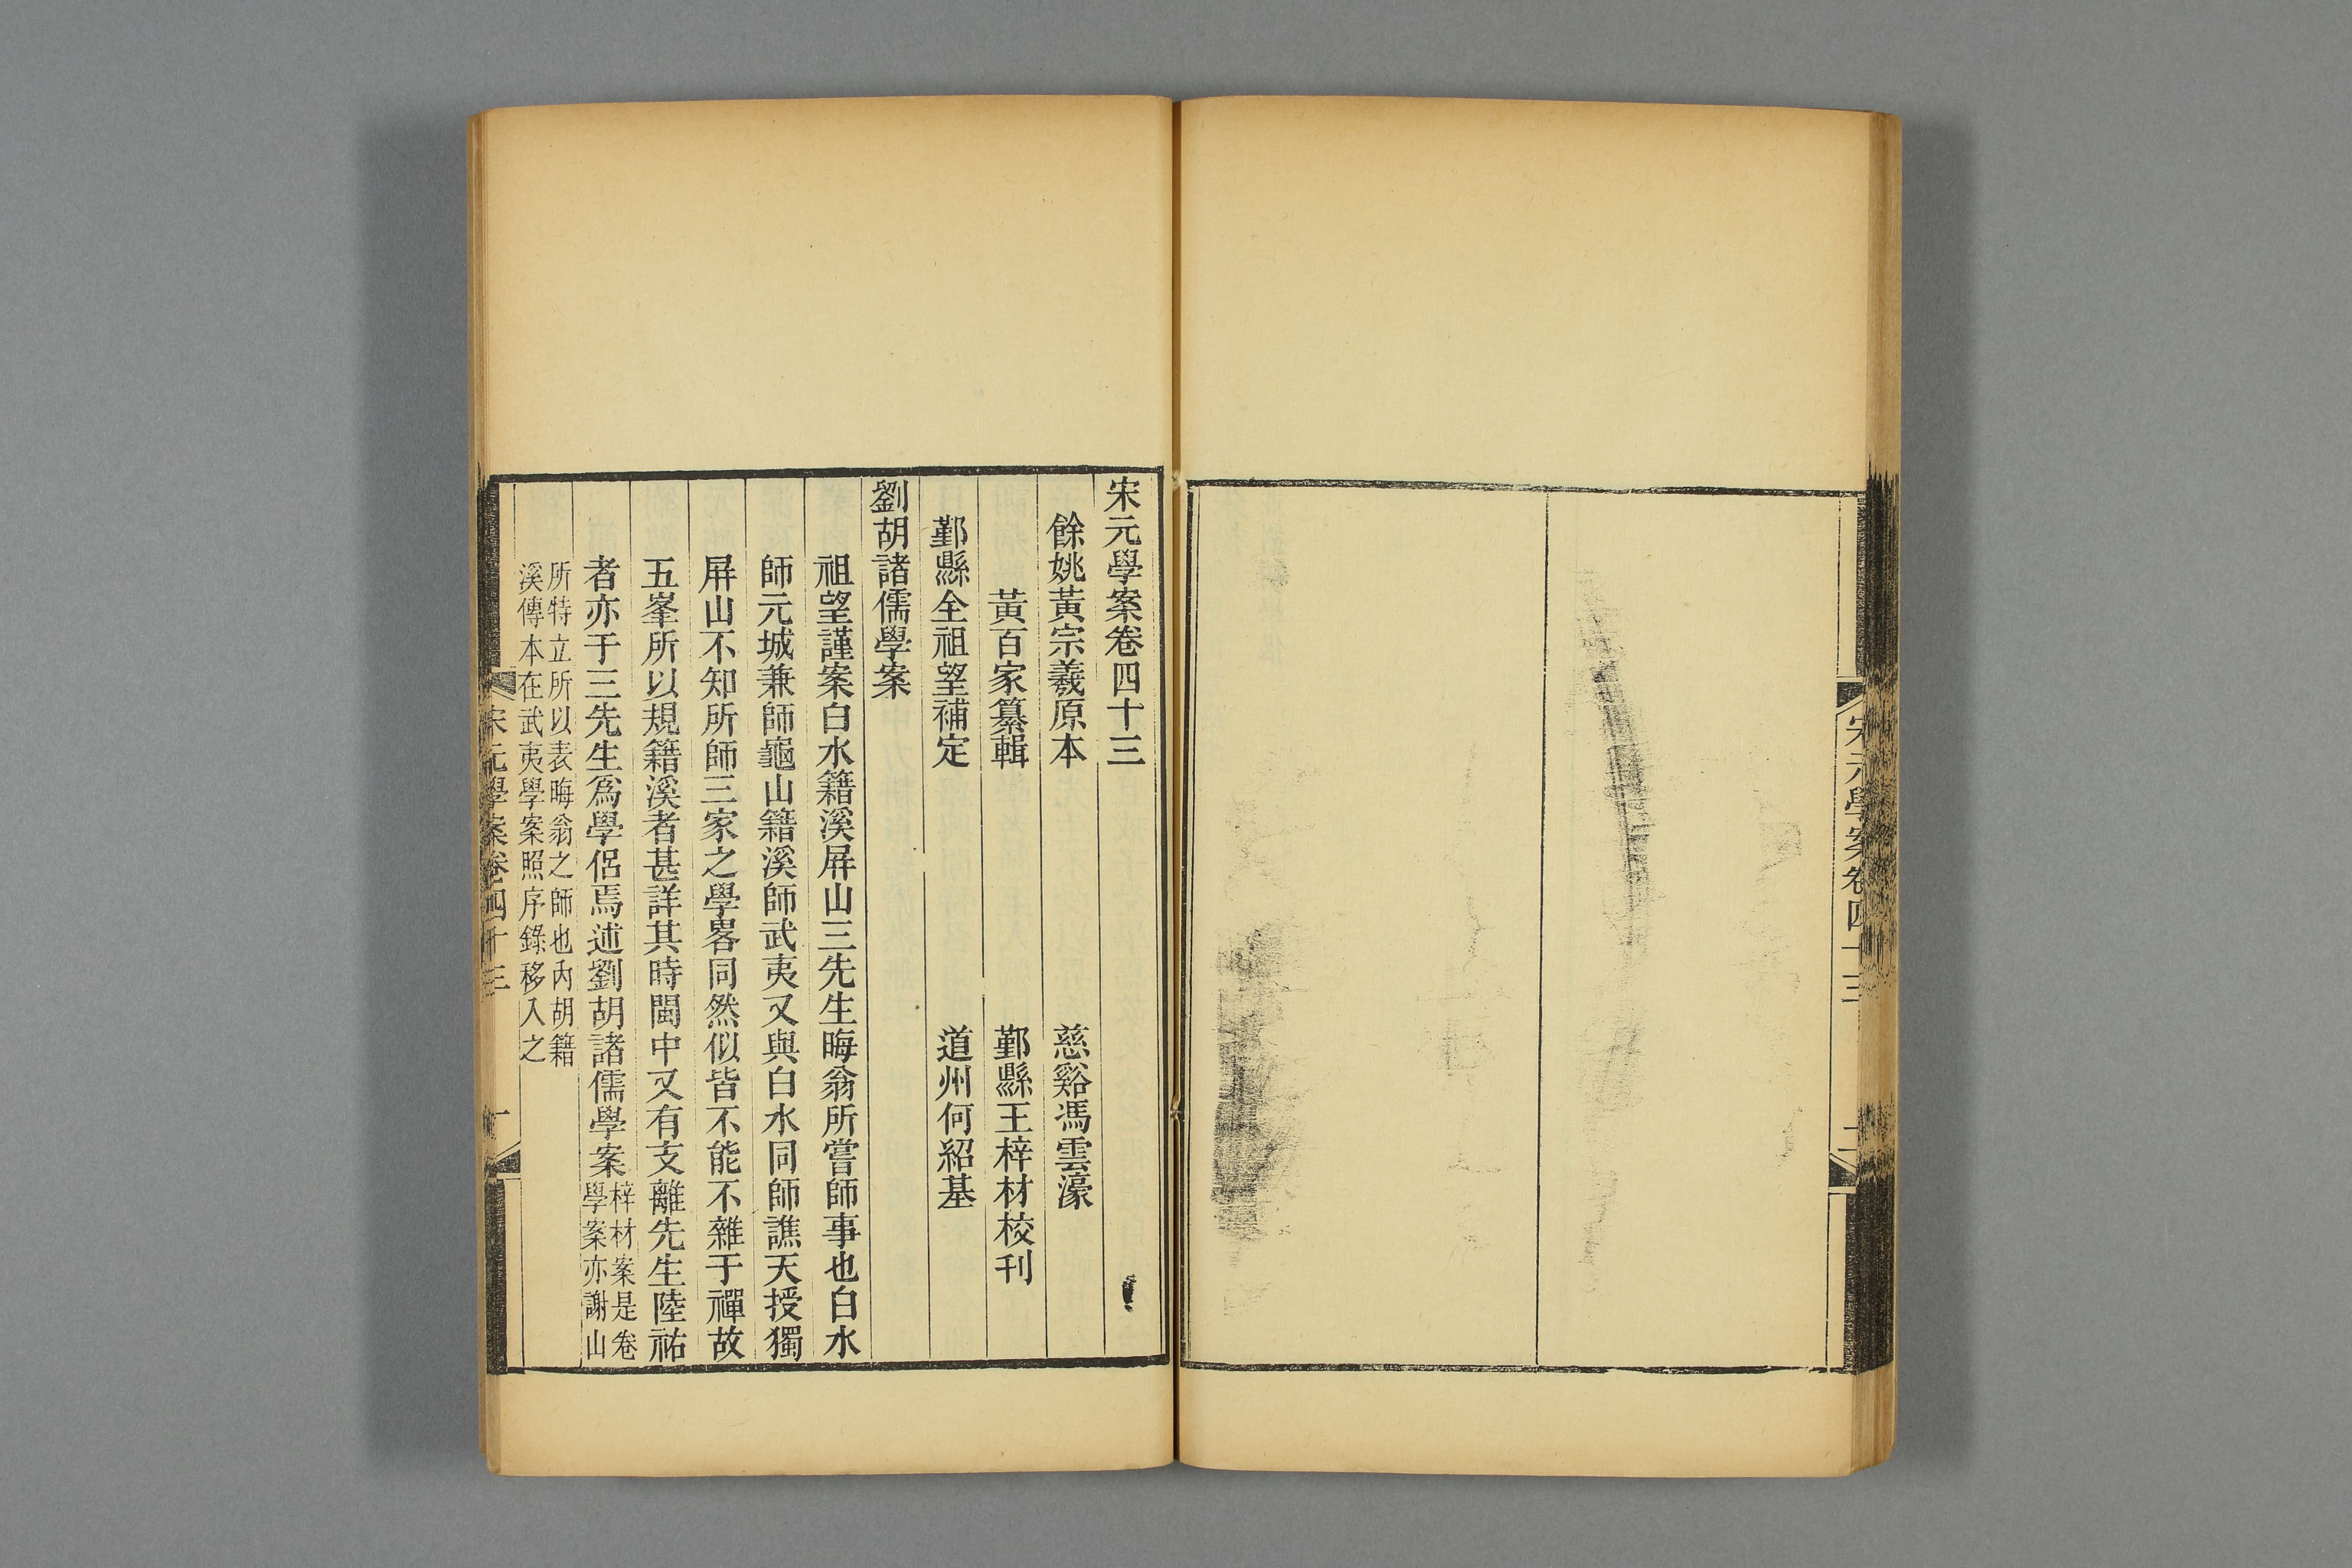 宋元學案卷四十三
二
宋元學案卷四十三
餘姚黃宗羲原本 慈谿馮雲濠
黃百家纂輯 鄞縣王梓材校刊
鄞縣全祖望補定 道州何紹基
劉胡諸儒學案
祖望謹案白水籍溪屏山三先生晦翁所嘗師事也白水
師元城兼師龜山籍溪師武夷又與白水同師譙天授獨
屏山不知所師三家之學畧同然似皆不能不雜于禪故
五峯所以規籍溪者甚詳其時閩中又有支離先生陸祐
者亦于三先生爲學侶焉述劉胡諸儒學案
梓材案是卷
學案亦謝山
所特立所以表晦翁之師也內胡籍
溪傳本在武夷學案照序錄移入之
宋元學案卷四十三
一